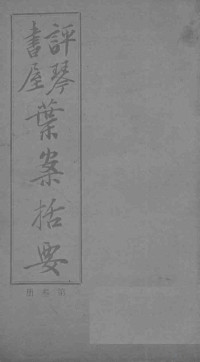 評琴書屋葉案括要